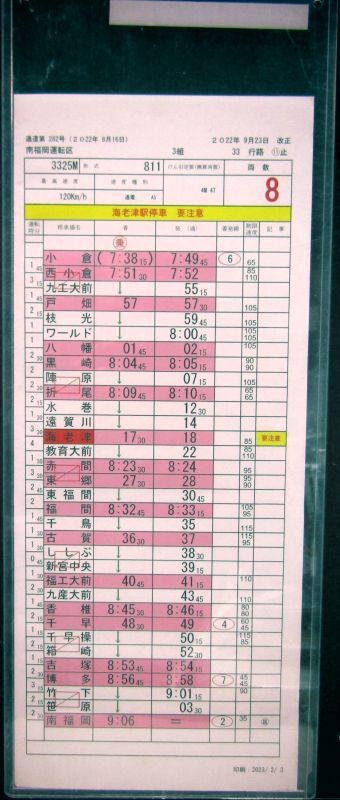 達第 282号 (2022年 8月16日) 2022年 9月23日 改正
南福岡運転区 3組 33 行路 止
3325M 形式 811 けん引定数(換算両数) 両数
最高速度 速度種別 4M 4T 8
120Km/h 通電 A5
海老津駅停車 要注意
運転時分 停車場名 着 発(通) 着発線 制限速度 記事
乗
小倉 (7:38 15) 7:49 45 6 65
1 45 西小倉 7:51 30 7:52 85 110
九工大前 ↓ 55 15
戸畑 57 57 30 105
枝光 ↓ 59 45
ワールド ↓ 8:00 45 105
八幡 01 45 02 15 105
黒崎 8:04 45 8:05 15 90 90
陣原 ↓ 07 15 105
折尾 8:09 45 8:10 15 65 65
水巻 ↓ 12 30
遠賀川 ↓ 14
海老津 17 30 18 85 要注意
教育大前 ↓ 22 85 110
赤間 8:23 30 8:24 95
東郷 27 30 28 95 90
東福間 ↓ 30 45
福間 8:32 45 8:33 15 105 95
千鳥 ↓ 35 115
古賀 36 30 37 115 95
ししぶ ↓ 38 30
新宮中央 ↓ 39 15
福工大前 40 45 41 15 110
九産大前 ↓ 43 45 110
香椎 8:45 30 8:46 15 80 80
千早 48 30 49 4 60 45
千早操 ↓ 50 15 115 85
箱崎 ↓ 52 30
吉塚 8:53 45 8:54 15
博多 8:56 45 8:58 7 45 45
竹下 ↓ 9:01 15 90
笹原 ↓ 03 30
南福岡 9:06 = 2 35
印刷:2023/ 2/ 3